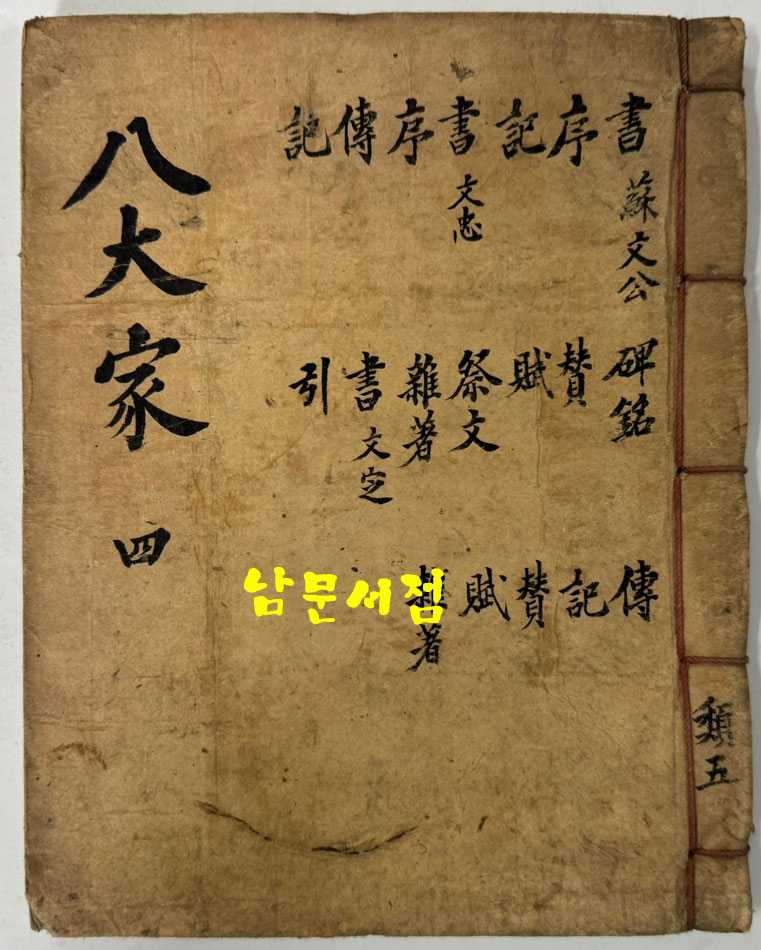 八大家 四
書 蘇文公
序
記
書 文忠
序
傳
記
碑銘
賛
賦
祭文
雜著
書 文定
引
傳
記
賛
賦
雜著
類五
남문서점